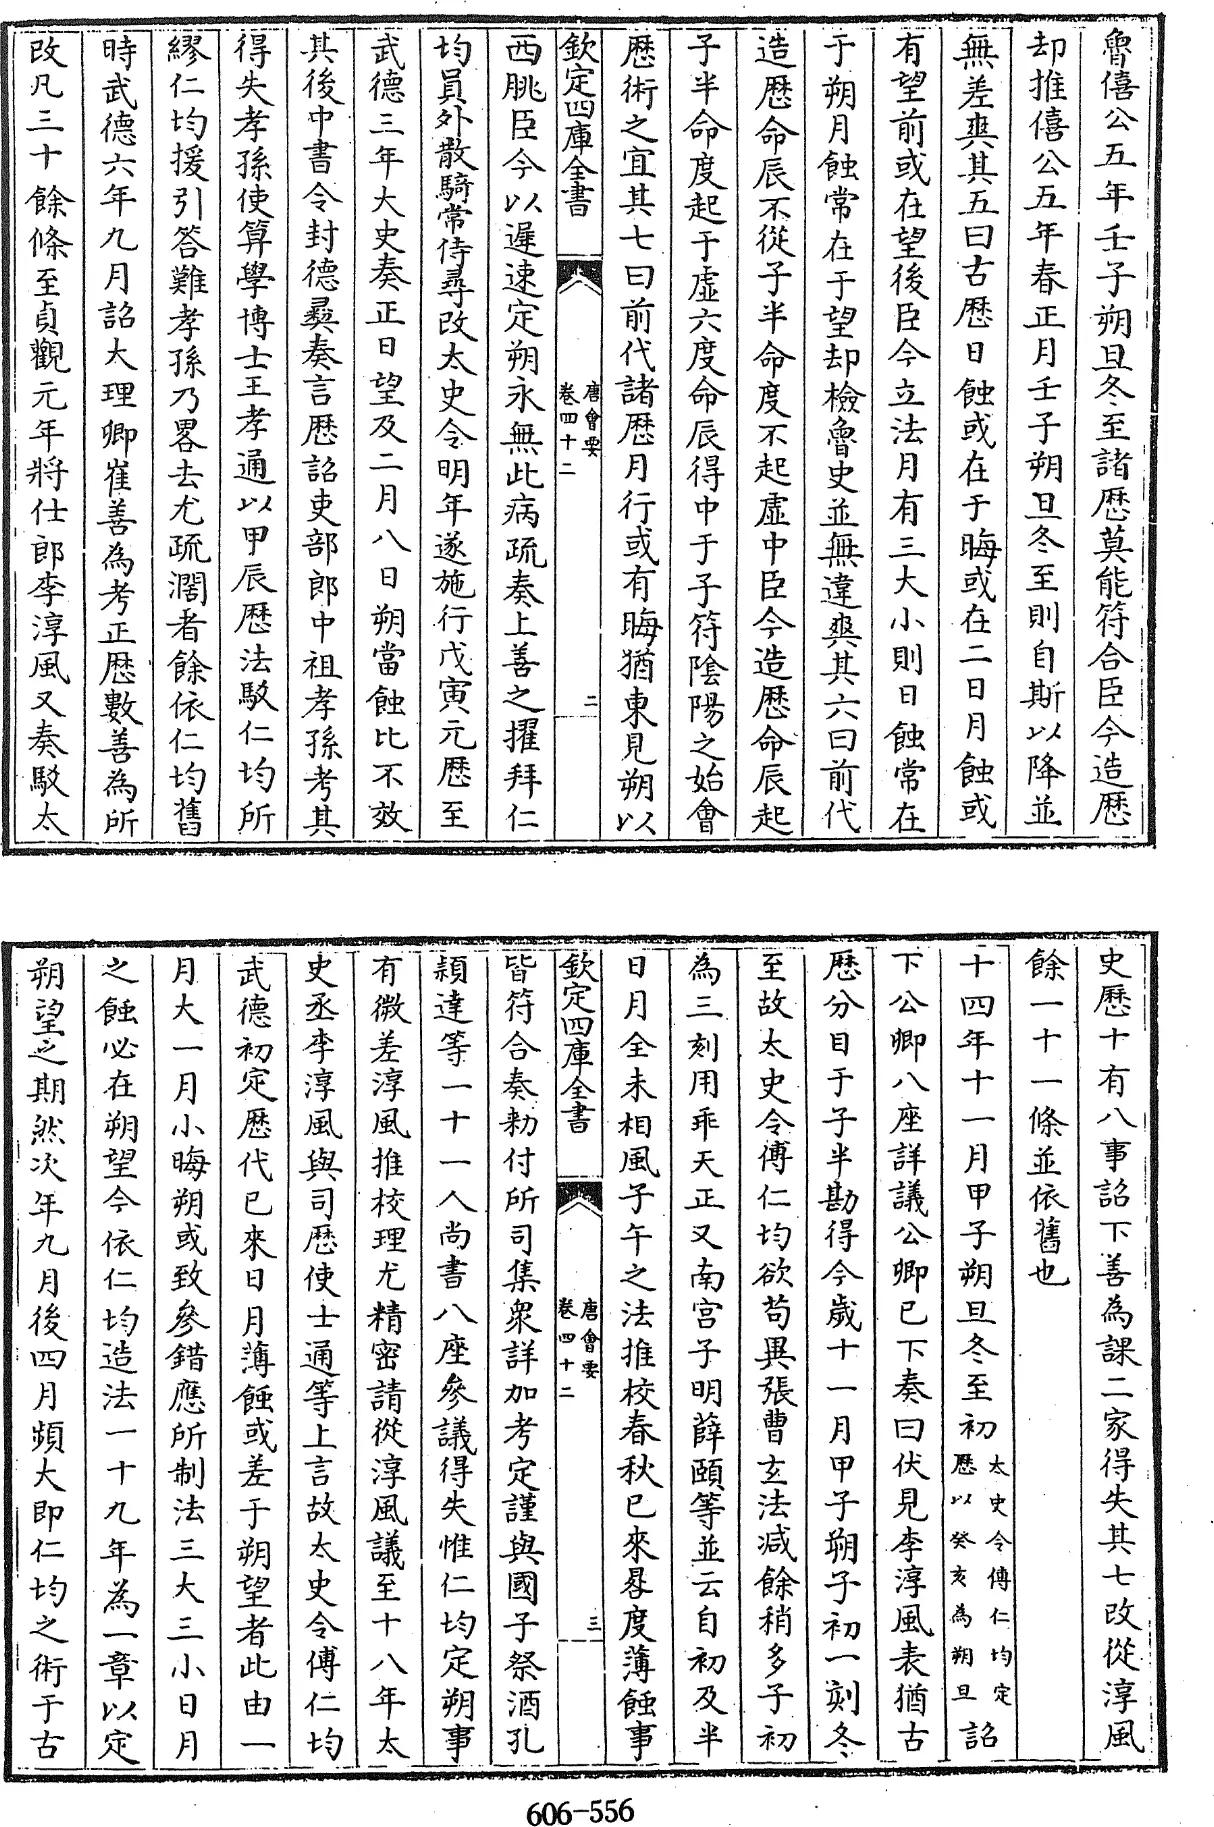 魯僖公五年壬子朔旦冬至諸歴莫能符合臣今造歴
却推僖公五年春正月壬子朔旦冬至則自斯以降並
無差爽其五曰古歴日蝕或在于晦或在二日月蝕或
有望前或在望後臣今立法月有三大小則日蝕常在
于朔月蝕常在于望却檢魯史並無違爽其六曰前代
造歴命辰不從子半命度不起虛中臣今造歴命辰起
子半命度起于虛六度命辰得中于子符陰陽之始會
歴術之宜其七曰前代諸歴月行或有晦猶東見朔以
欽定四庫全書
唐會要
卷四十二
二
西朓臣今以遲速定朔永無此病疏奏上善之擢拜仁
均員外散騎常侍尋改太史令明年遂施行戊寅元歴至
武德三年大史奏正日望及二月八日朔當蝕比不效
其後中書令封德彞奏言歴詔吏部郎中祖孝孫考其
得失孝孫使算學博士王孝通以甲辰歴法駁仁均所
繆仁均援引答難孝孫乃畧去尤疏濶者餘依仁均舊
時武德六年九月詔大理卿崔善為考正歴數善為所
改凡三十餘條至貞觀元年將仕郎李淳風又奏駁太
史歴十有八事詔下善為課二家得失其七改從淳風
餘一十一條並依舊也
十四年十一月甲子朔旦冬至初太史令傅仁均定歴以癸亥為朔旦詔
下公卿八座詳議公卿已下奏曰伏見李淳風表猶古
歴分目于子半勘得今歲十一月甲子朔子初一刻冬
至故太史令傅仁均欲苟異張曹玄法減餘稍多子初
為三刻用乖天正又南宫子明薛頤等並云自初及半
日月全未相風子午之法推校春秋已來晷度薄蝕事
欽定四庫全書
唐會要
卷四十二
三
皆符合奏勑付所司集衆詳加考定謹與國子祭酒孔
穎達等一十一人尚書八座參議得失惟仁均定朔事
有微差淳風推校理尤精密請從淳風議至十八年太
史丞李淳風與司歴使士通等上言故太史令傅仁均
武德初定歴代已來日月薄蝕或差于朔望者此由一
月大一月小晦朔或致參錯應所制法三大三小日月
之蝕必在朔望今依仁均造法一十九年為一章以定
朔望之期然次年九月後四月頻大即仁均之術于古
606-556